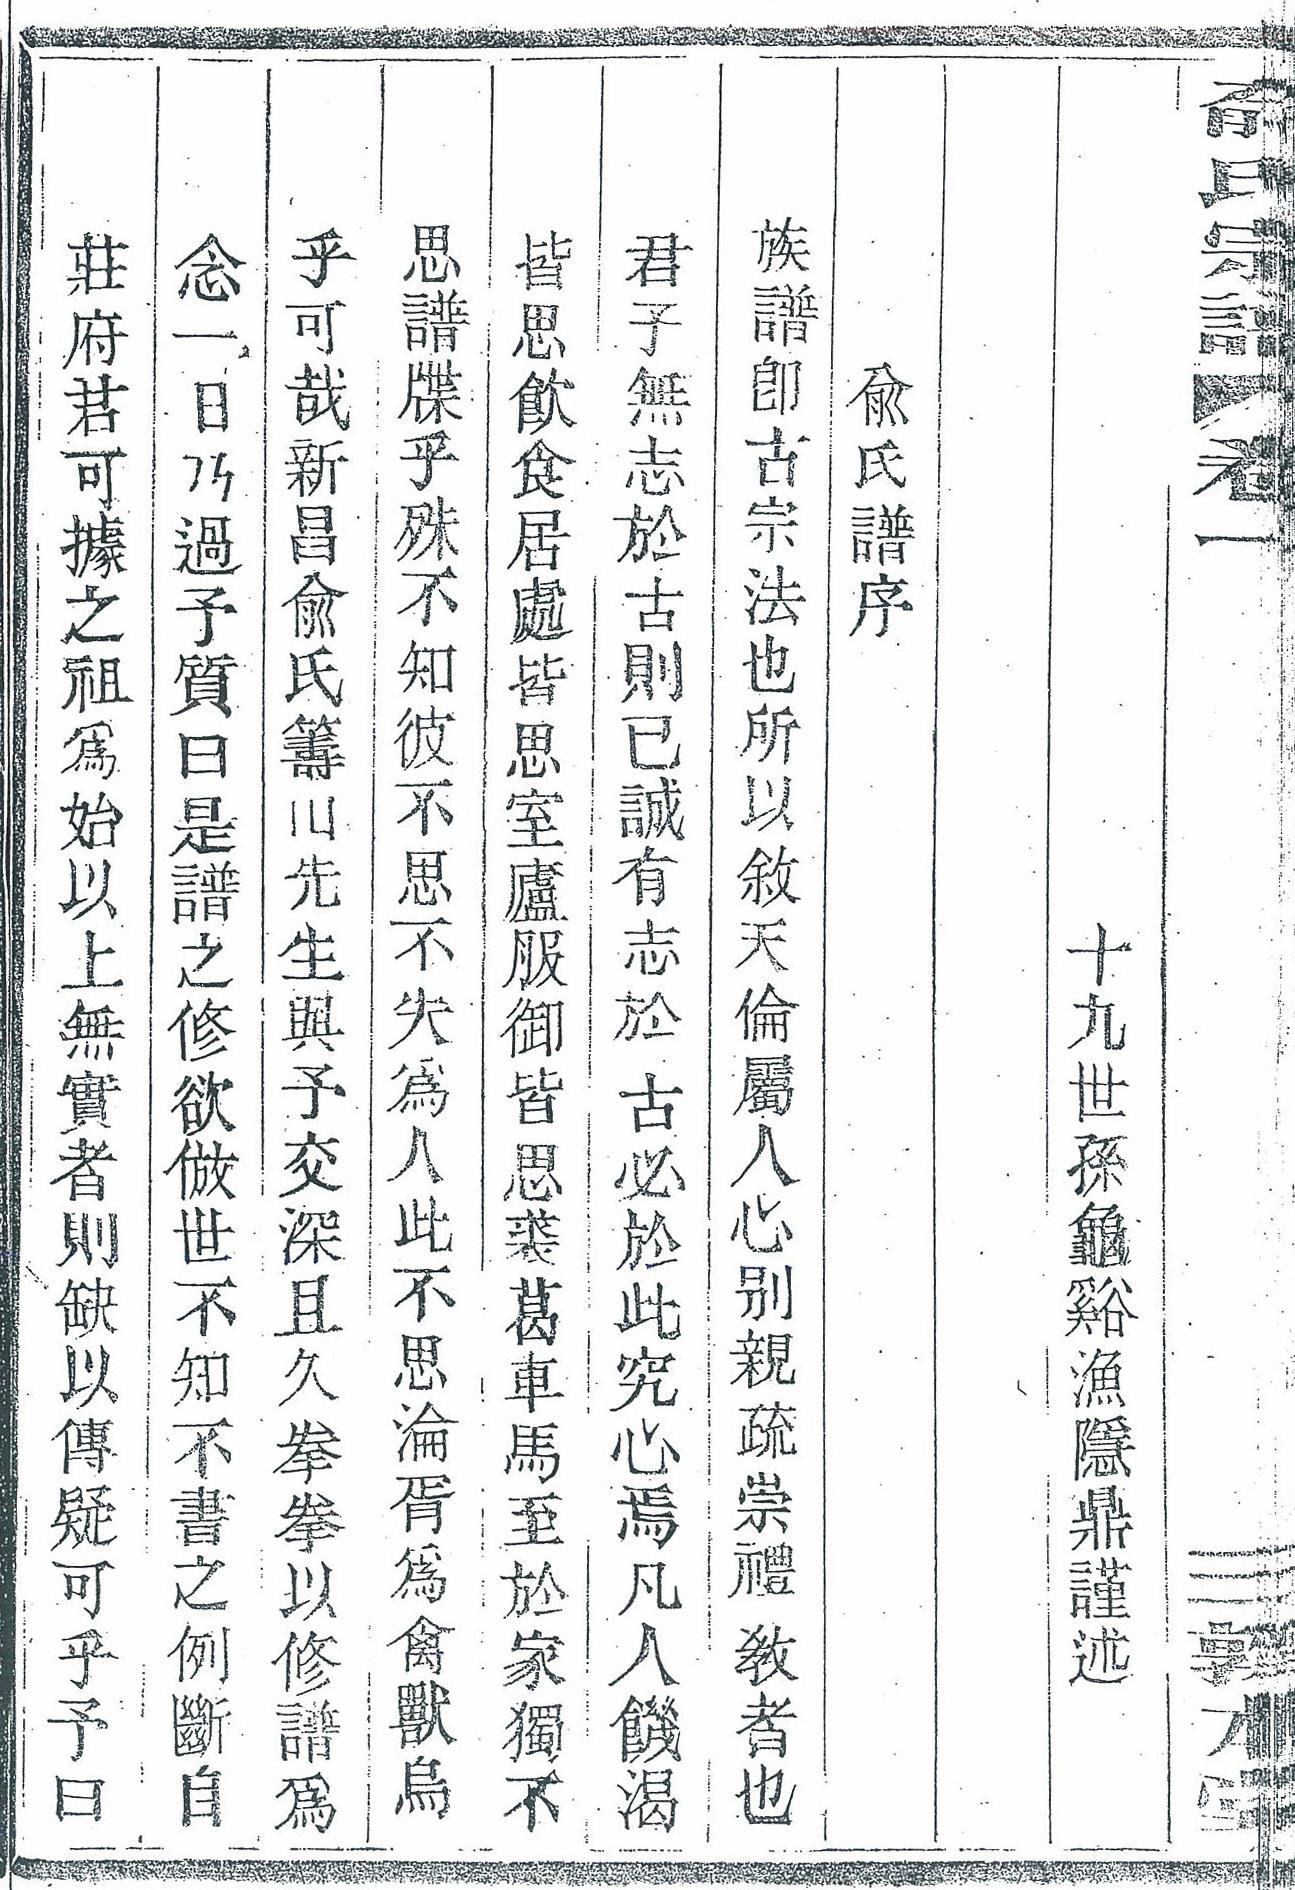 俞氏宗譜 卷一 三 敦本堂
十九世孫龜谿漁隱鼎謹述
俞氏譜序
族譜卽古宗法也所以敘天倫屬人心别親疏崇禮敎者也
君子無志於古則已誠有志於古必於此究心焉凡人饑渴
皆思飲食居處皆思室廬服御皆思裘葛車馬至於家獨不
思譜牒乎殊不知彼不思不失爲人此不思淪胥爲禽獸烏
乎可哉新昌俞氏籌川先生與予交深且久拳拳以修譜爲
念一日乃過予質曰是譜之修欲倣世不知不書之例斷自
莊府君可據之祖爲始以上無實者則缺以傳疑可乎予曰